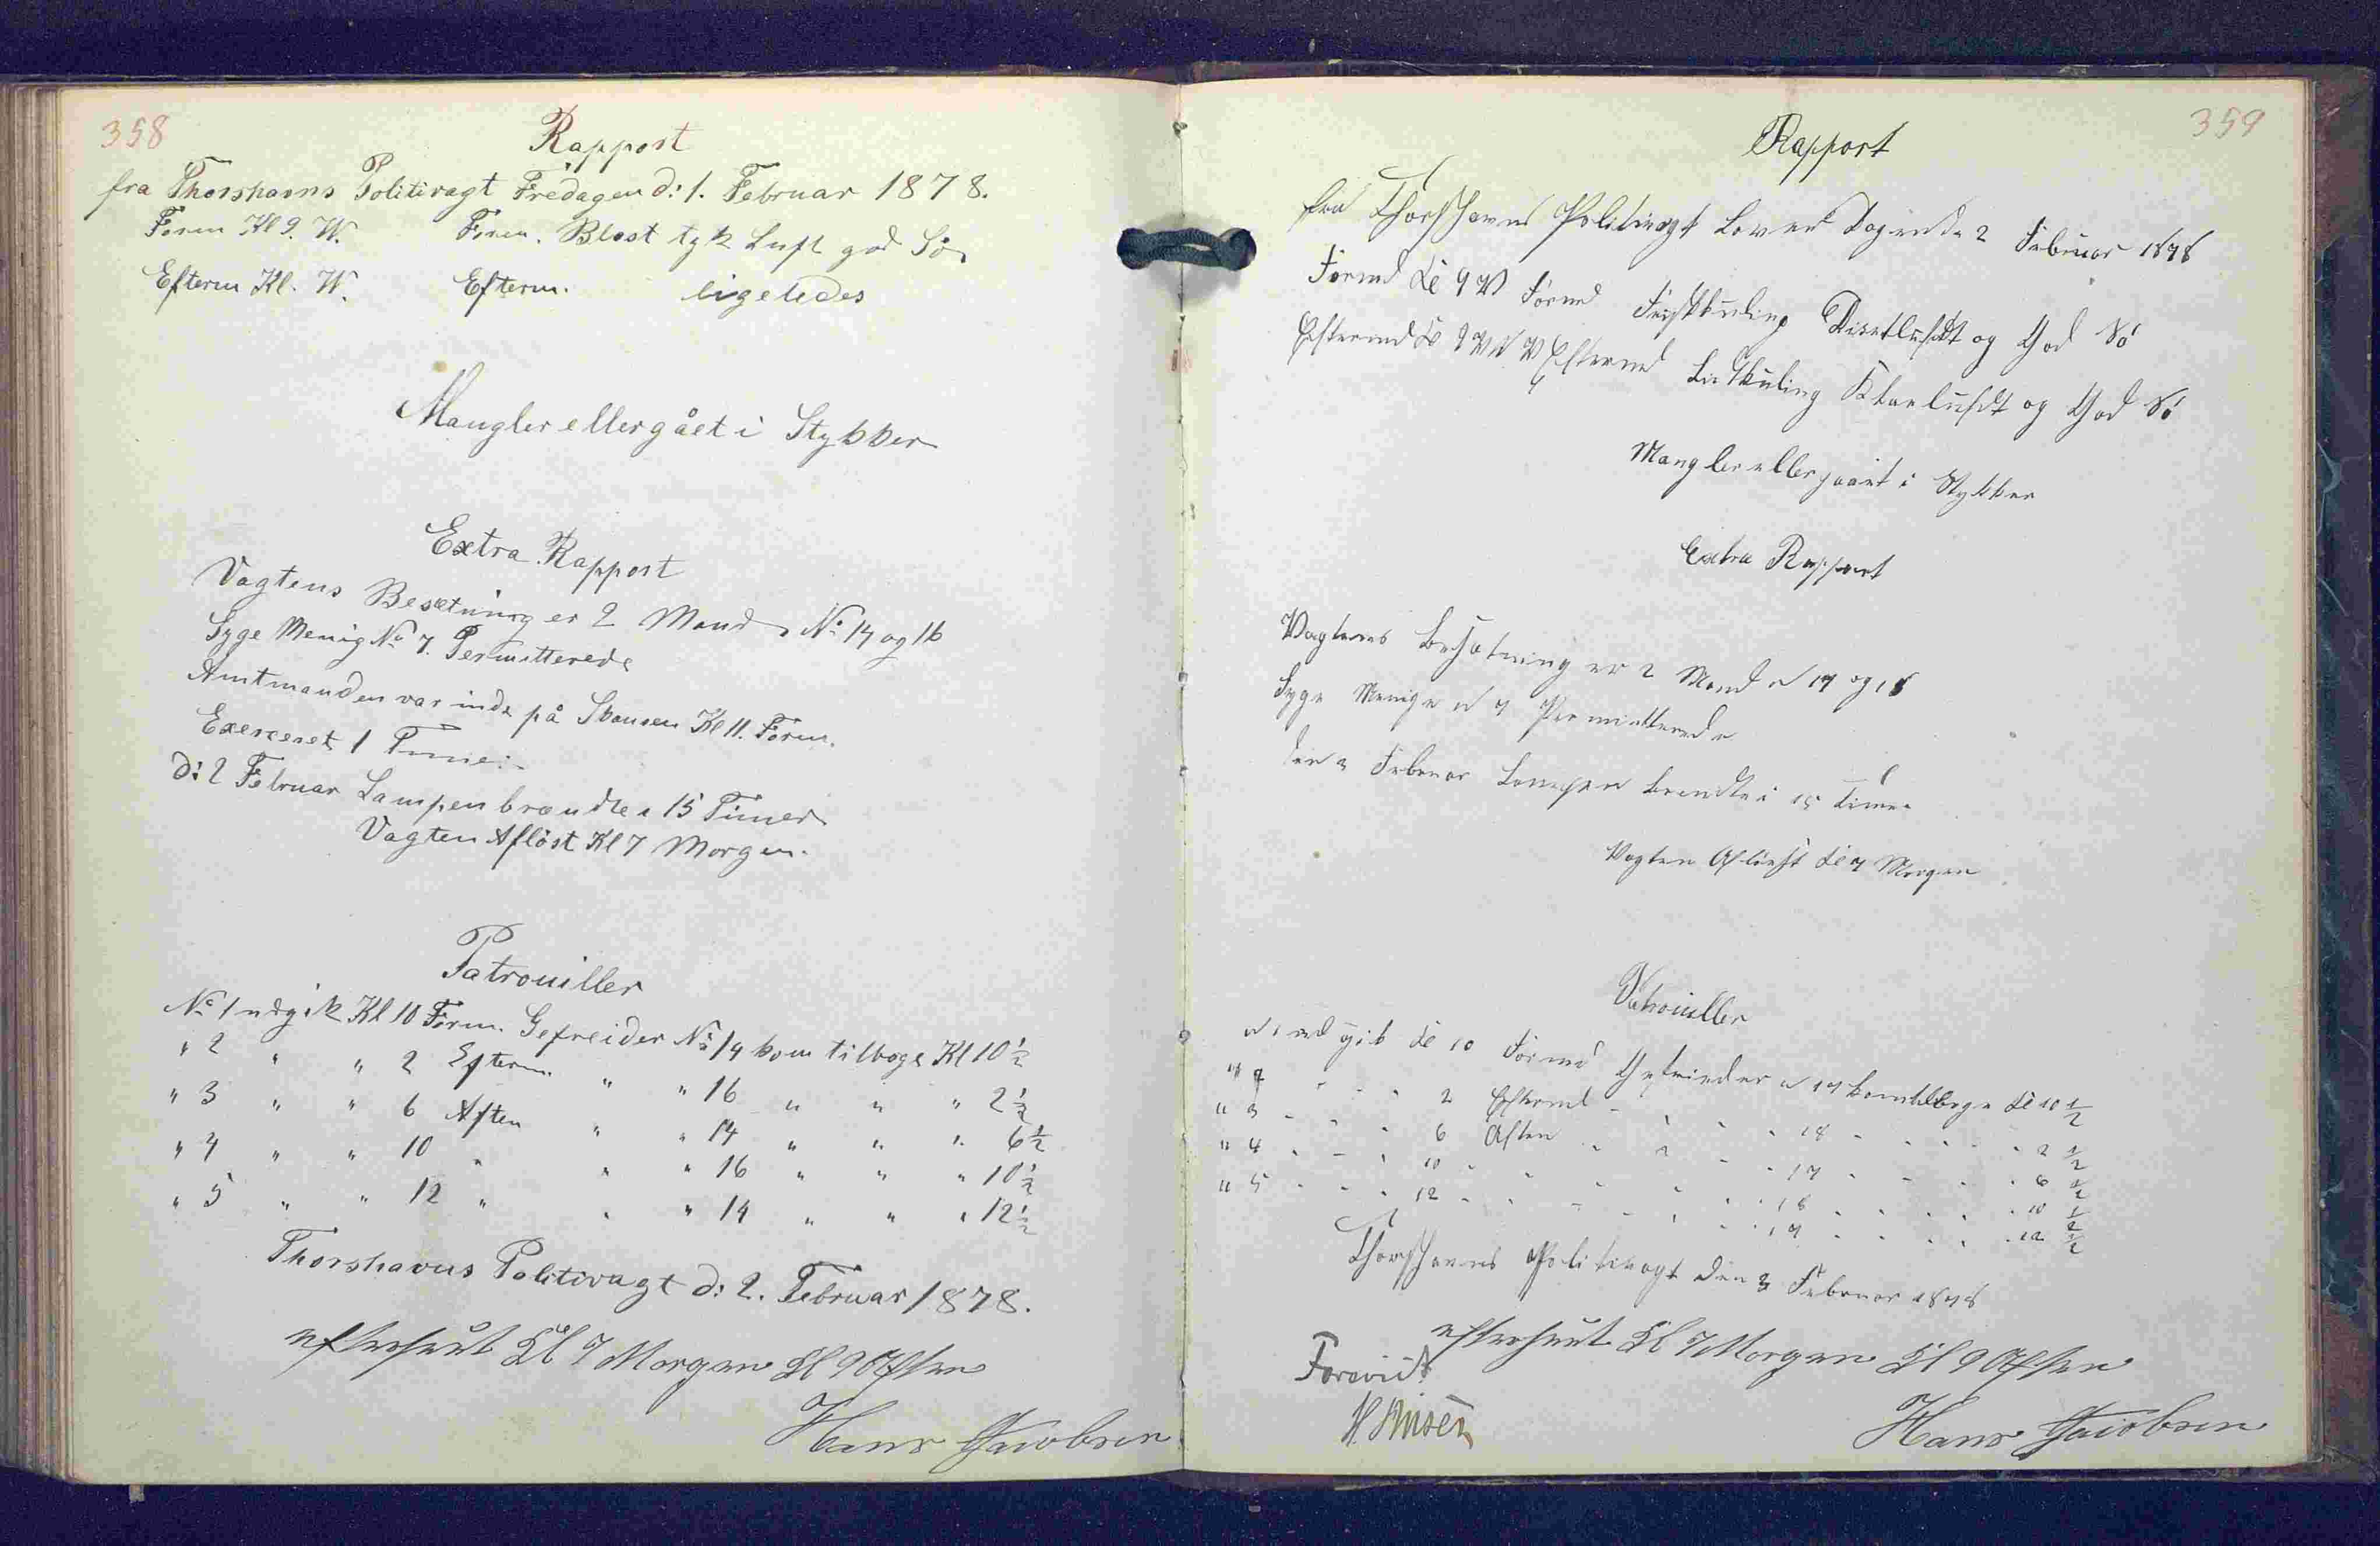 358
Rapport
fra Thorshavns Politivagt Fredagen d: 1. Februar 1878.
Form Kl 9. W. Form. Blæst tyk Luft god Sö
Efterm Kl. W. Efterm. ligeledes
Mangler eller gået i Stykker
Extra Rapport
Vagtens Besætning er 2 Mand No 14 og 16
Syge Menig No 7. Permitterede
Amtmanden var inde på Skansen Kl 11. Form.
Exerceret 1 Time:
d: 2 Februar Lampen brændte i 15 Timer
Vagten Aflöst Kl 7 Morgen.
Patrouiller
No 1 udgik Kl 10 Form. Gefreider No 14 kom tilbage Kl 10 1/2
" 2 " " 2 Efterm. " " 16 " " " 2 1/2
" 3 " " 6 Aften " " 14 " " " 6 1/2
" 4 " " 10 " " " 16 " " " 10 1/2
" 5 " " 12 " " " 14 " " " 12 1/2
Thorshavns Politivagt d: 2. Februar 1878.
efterseet Kl 7 Morgen Kl 9 Aften
Hans Jacobsen
359
Rapport
fra Thorshavns Politivagt Löverdagen d 2 Februar 1878
Formd Kl 9 W Formd Friskkuling Diset luft og God Sö
Eftermd Kl W Eftermd Kuling Klar luft og God Sö
Mangler eller gaaet i Stykker
Extra Rapport
Vagtens Besætning er 2 Mand N 17 og 18
Syge Menige N 7 Permitterede
den 3 Februar Lampen brendte i 15 Timer
Vagten Aflöst Kl 7 Morgen
Patrouiller
N 1 ud gik Kl 10 Formd Gefreider N 17 kom tilbage Kl 10 1/2
" 2 " " 2 Eftermd " " 18 " " " 2 1/2
" 3 " " 6 Aften " " 17 " " " 6 1/2
" 4 " " 10 " " " 18 " " " 10 1/2
" 5 " " 12 " " " 17 " " " 12 1/2
Thorshavns Politivagt den 3 Februar 1878
efterseet Kl 7 Morgen Kl 9 Aften
Forevist
Hans Jacobsen